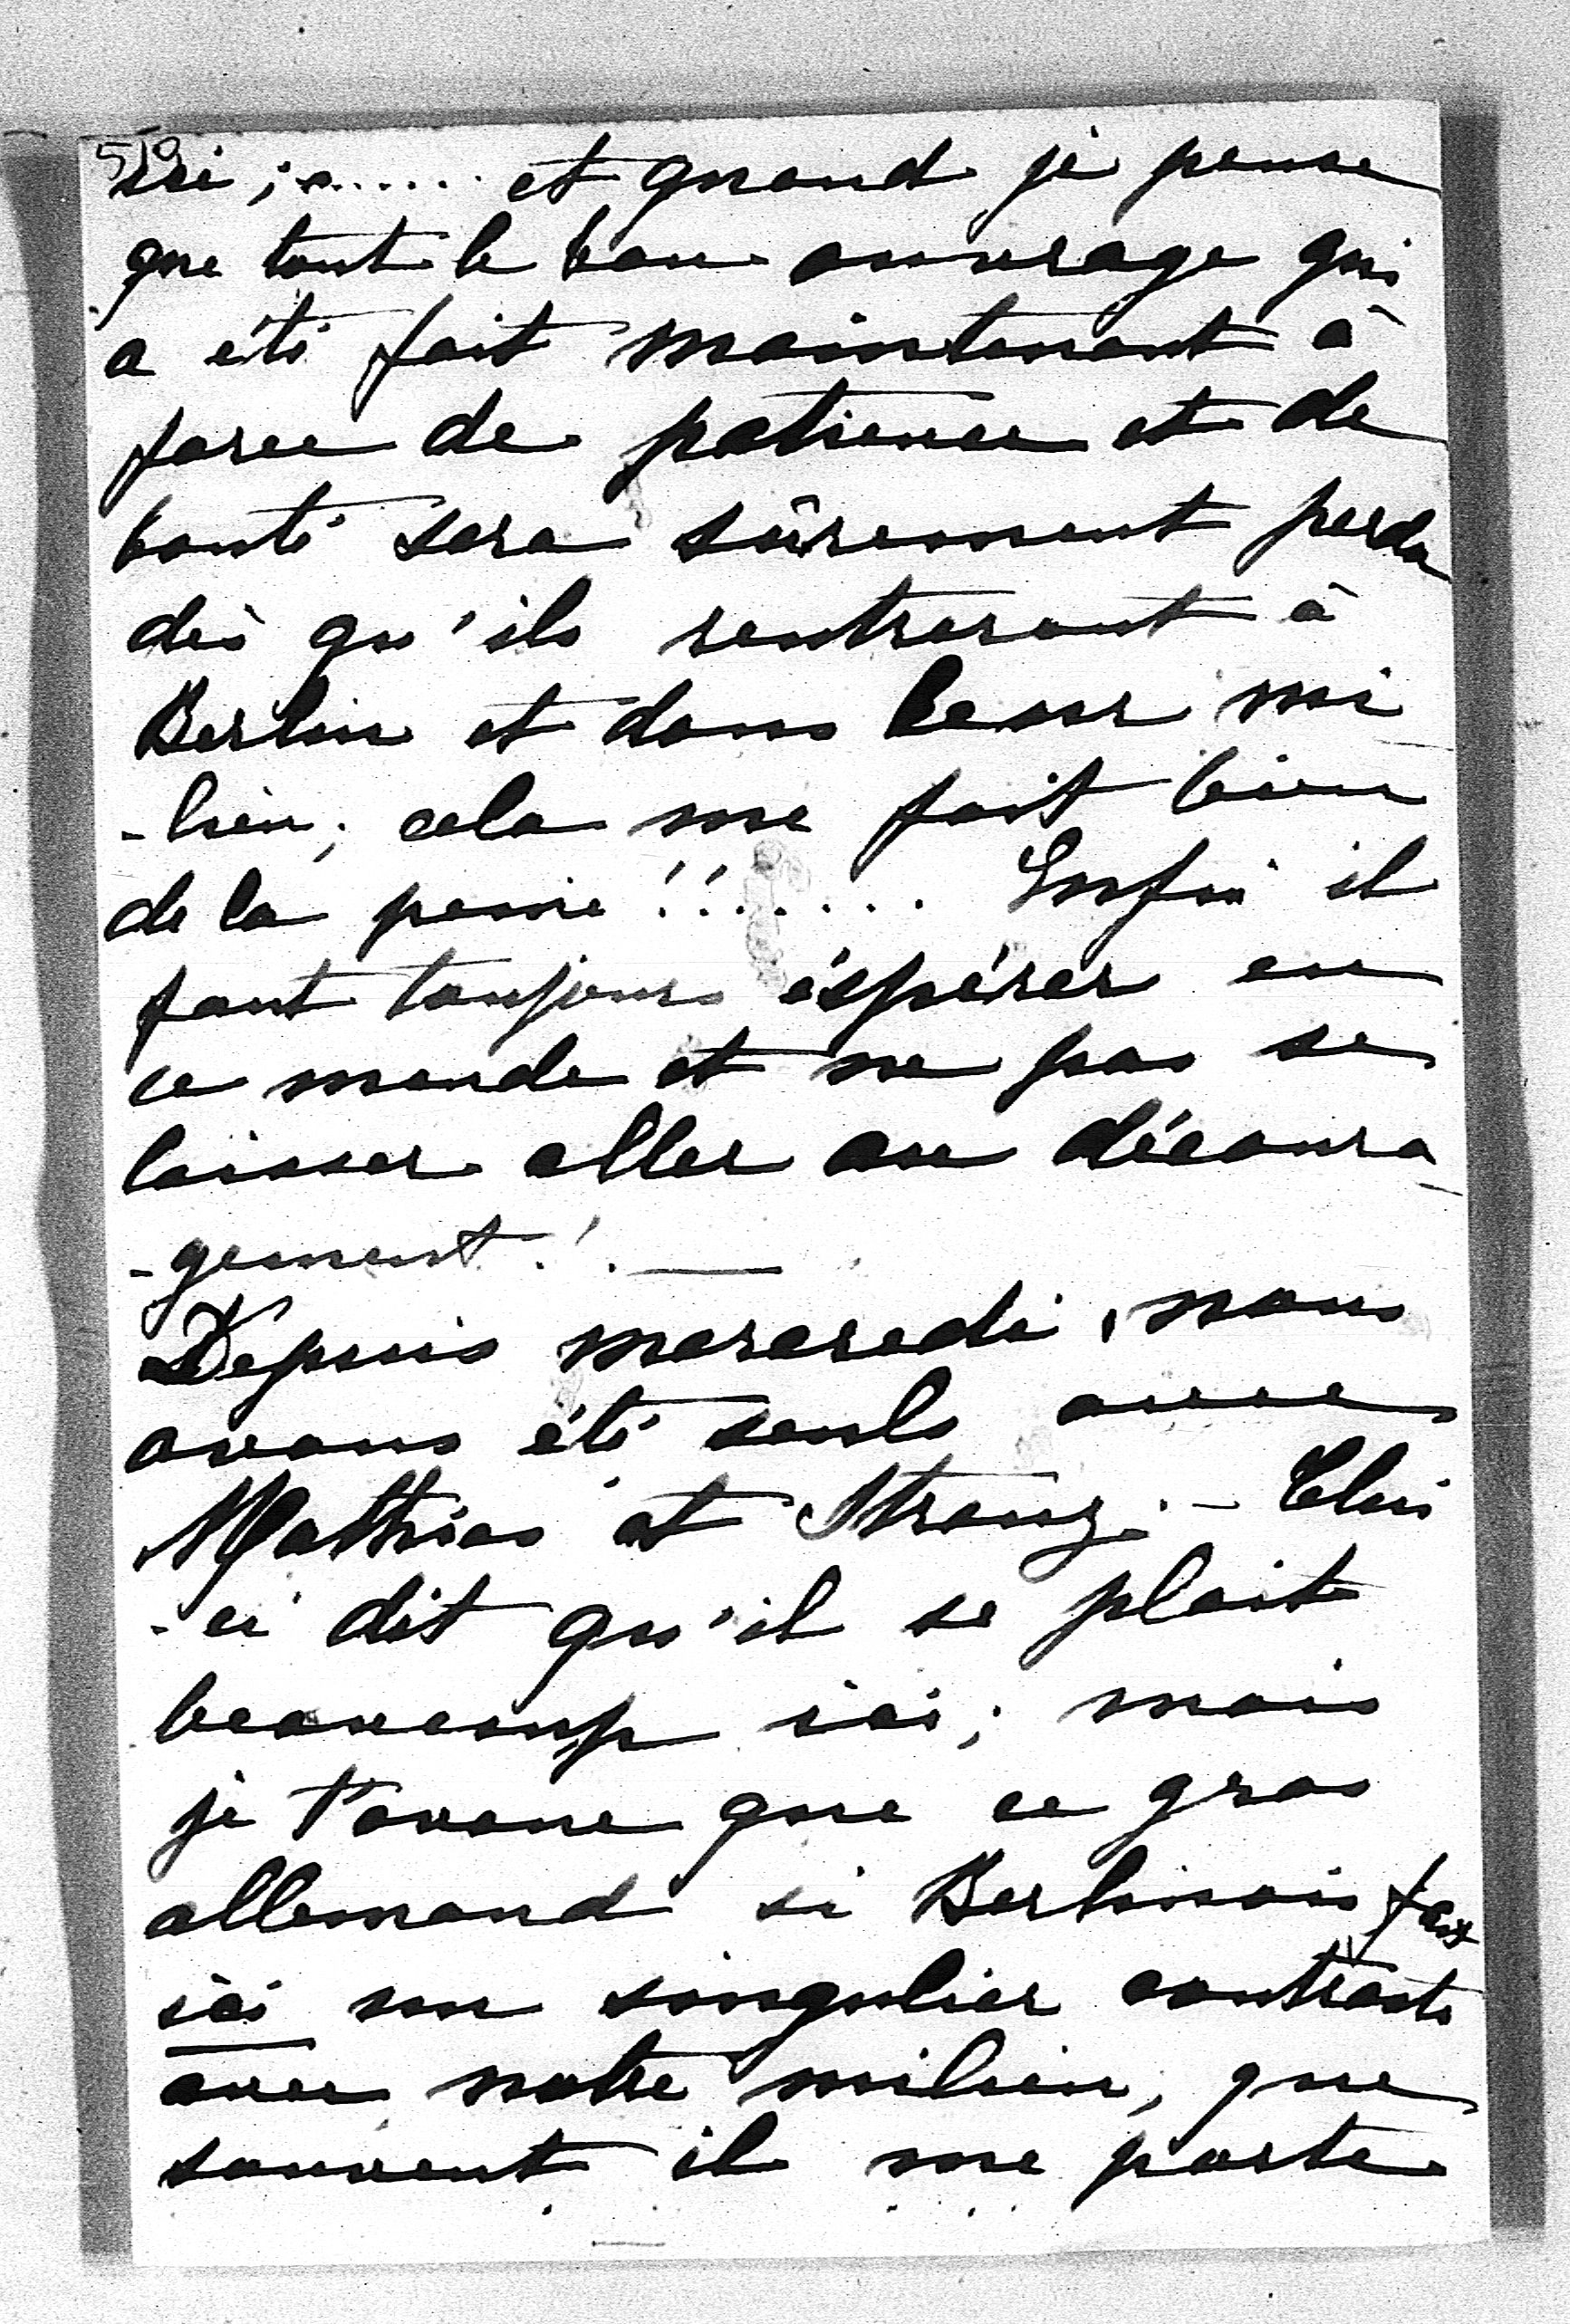 510
ici ; . . . . . . et quand je pense
que tout le bon ouvrage qui
a été fait maintenant à
force de patience et de
bonté sera sûrement perdu
dès qu'ils rentreront à
Berlin et dans leur mi
-lieu; cela me fait bien
de la peine !! . . . . . . Enfin il
faut toujours éspérer en
ce monde et ne pas se
laisser aller au découra_
-gement ! . —
Depuis mercredi, nous
avons été seuls avec
Matthias et Strantz. - Celui
-ci dit qu'il se plait
beaucoup ici; mais
je t'avoue que ce gros
allemand si Berlinois fait
ici un singulier contraste
avec notre milieu, que
souvent il me porte